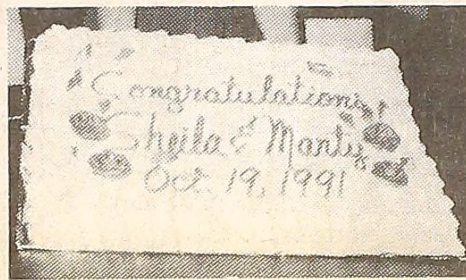 Congratulations!
Sheila & Marty
Oct 19, 1991